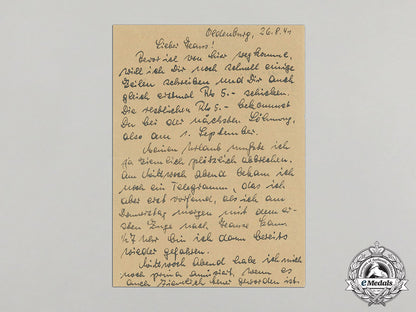 Oldenburg, 26.8.41
Lieber Hans!
Bevor ich von hier wegkomme,
will ich Dir noch schnell einige
Zeilen schreiben und Dir auch
gleich erstmal RM 5.- schicken.
Die restlichen RM 5.- bekommst
Du bei der nächsten Löhnung,
also am 1. September.
Meinen Urlaub mußte ich
ja ziemlich plötzlich abbrechen.
Am Mittwoch abend bekam ich
noch ein Telegramm, das ich
aber erst vorfand, als ich am
Donnerstag morgen mit dem er-
sten Zuge nach Hause kam.
Uhr bin ich dann bereits
wieder gefahren.
Mittwoch abend habe ich mich
noch prima amüsiert, wenn es
auch ziemlich teuer geworden ist.
eMedals